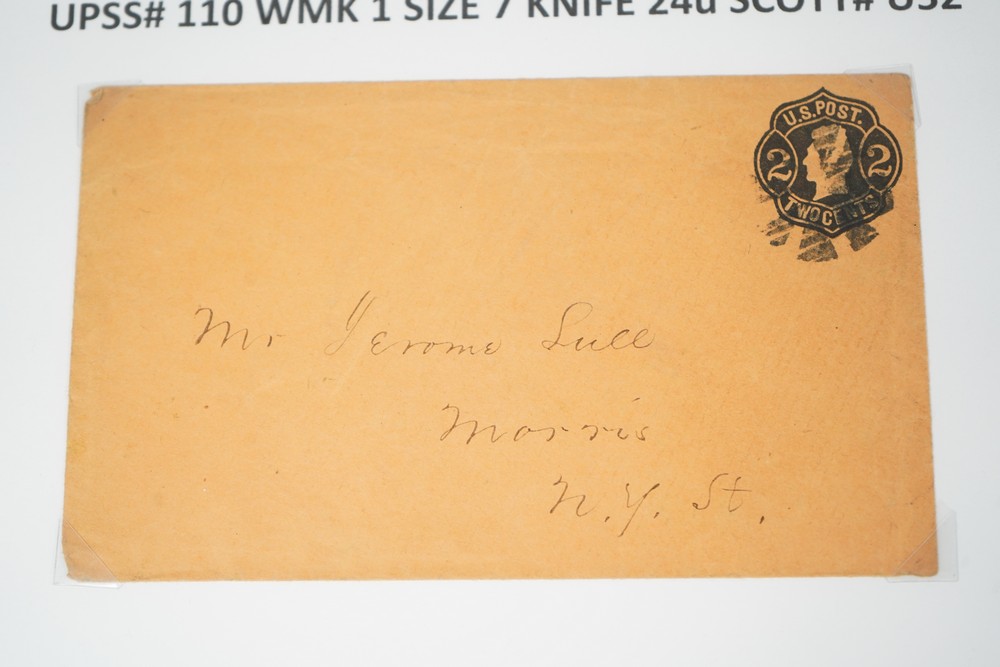 UPSS# 110 WMK 1 SIZE 7 KNIFE 24u SCOTT# U52
U.S. POST.
2 2
TWO CENTS
Mr Jerome Lull
Morris
N.Y. St.